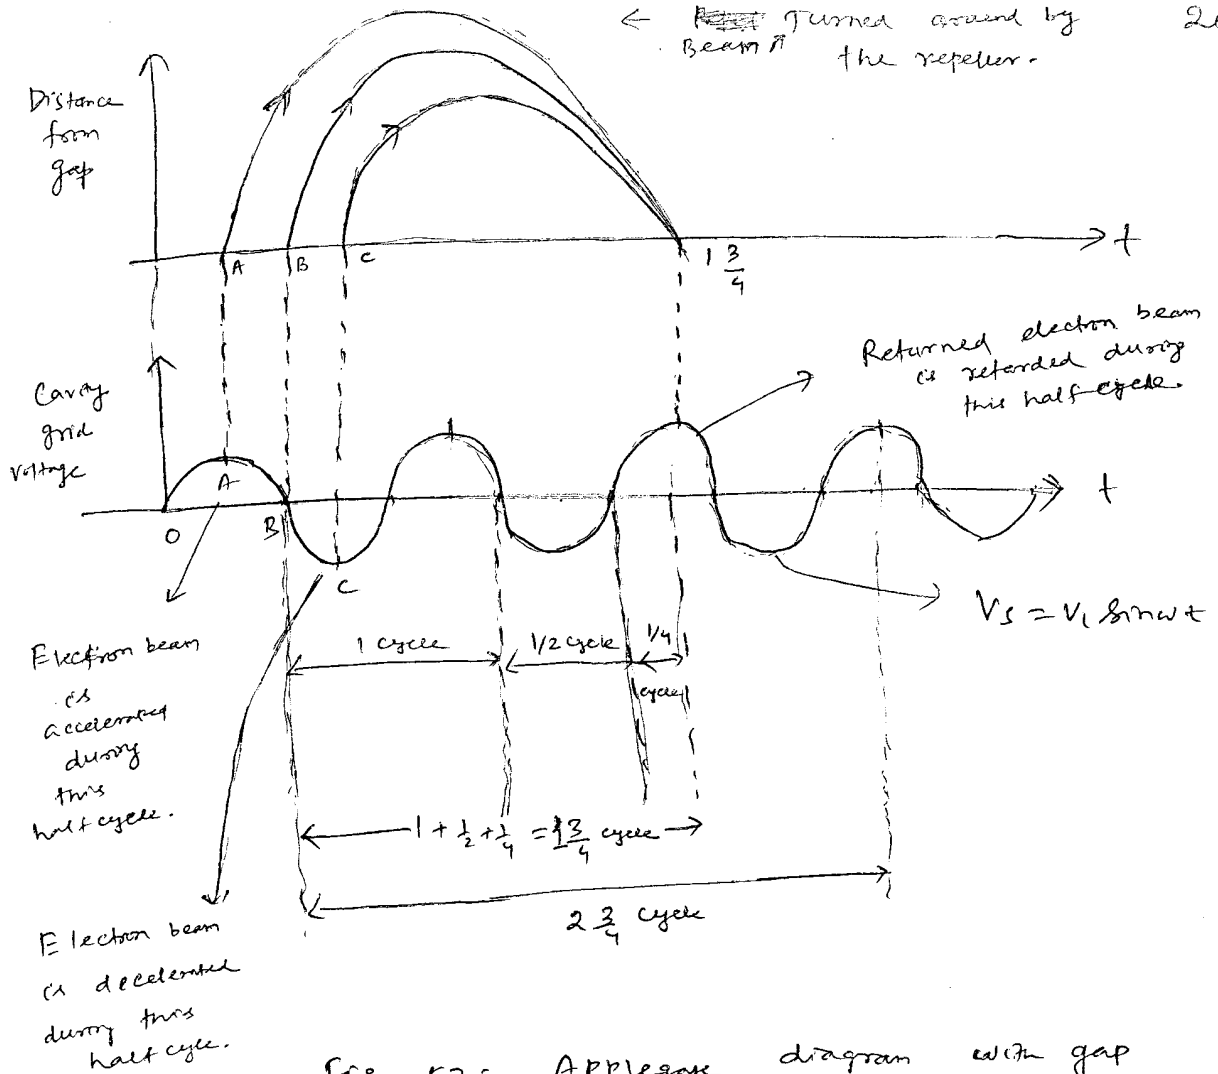 ← Turned around by
Beam
the repeller.
Distance
from
gap
A
B
C
1 3/4
t
Returned electron beam
is retarded during
this half cycle.
Cavity
grid
voltage
A
O
B
C
t
Vs = V1 sinωt
Electron beam
is
accelerated
during
this
half cycle.
1 cycle
1/2 cycle
1/4
cycle
1 + 1/2 + 1/4 = 1 3/4 cycle
2 3/4 cycle
Electron beam
is decelerated
during this
half cycle.
diagram with gap